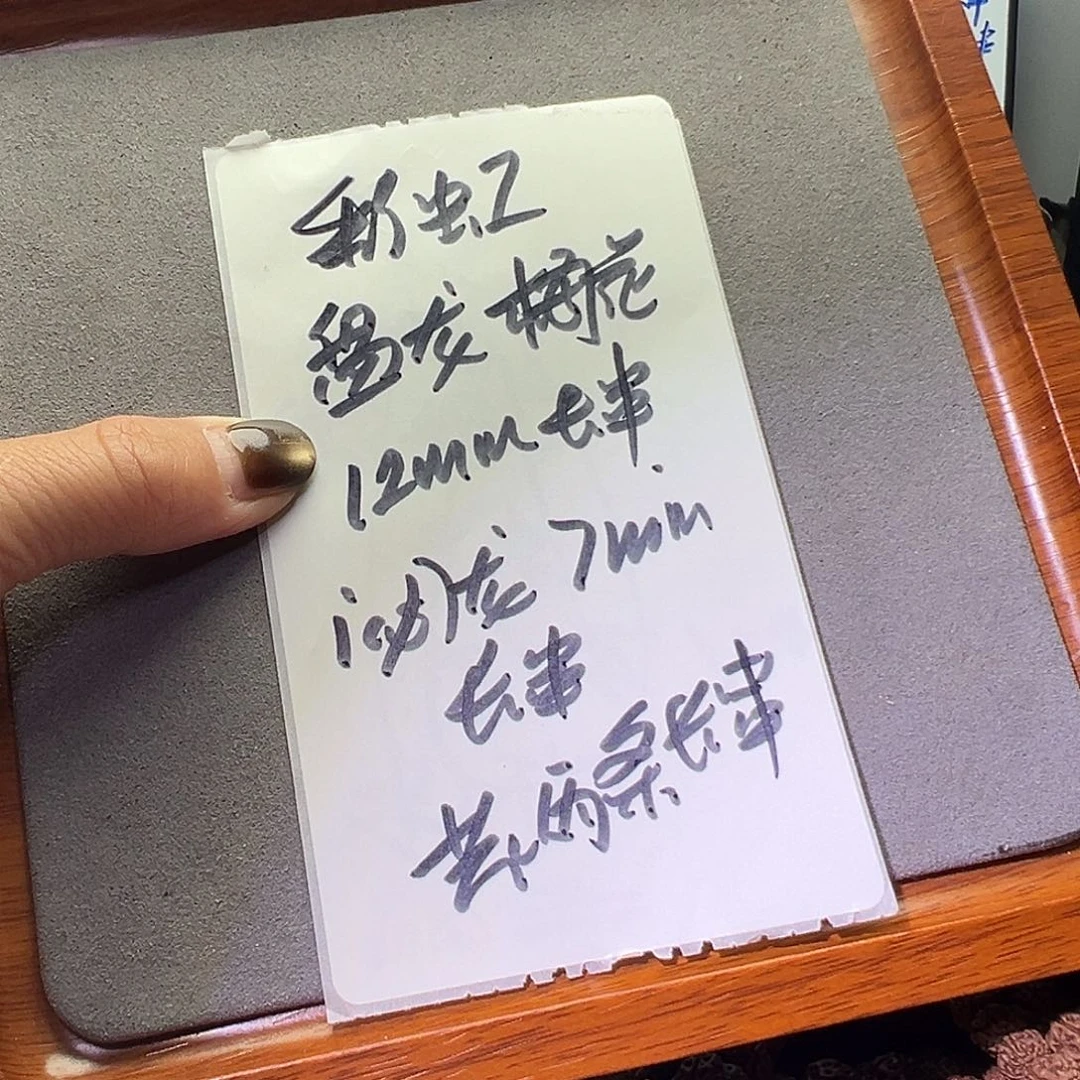 彩虹
盘龙桃花
12mm长串
泌龙7mm
长串
共两条长串